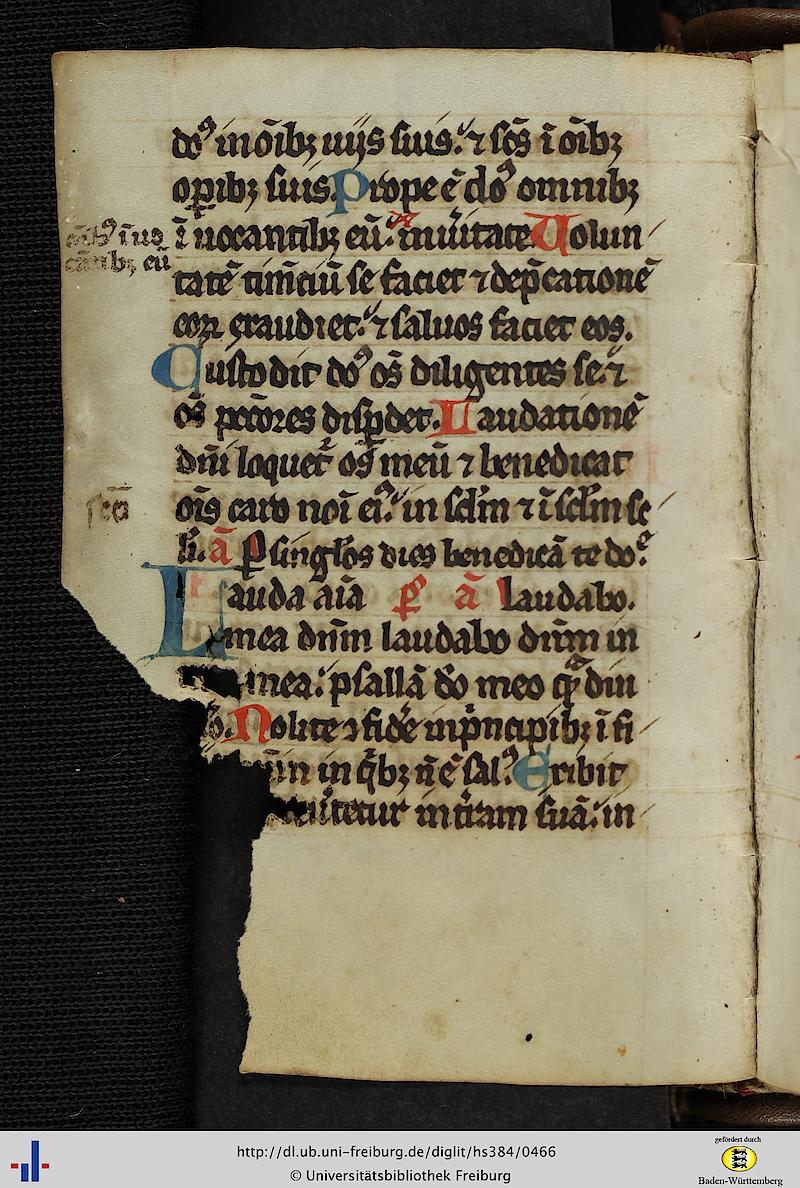 do᷒ in oībꝫ uijs suis. ⁊ scs̄ ī oībꝫ
oꝑibꝫ suis. Prope ē do᷒ omnibꝫ
ī uocantibꝫ eū. in uĭtate. Uolun
om̄ibꝫ īuo
cātibꝫ eū
tatē timc̄iū se faciet ⁊ dep̄cationē
eoꝝ exaudiet. ⁊ saluos faciet eos.
Custodit do᷒ os̄ diligentes se. ⁊
os̄ pctōres disꝑdet. Laudationē
dnī loquet᷒ os meū ⁊ benedicat
ois̄ caro noī ei᷒. in sclm̄ ⁊ ī sclm̄ se
scti
li. a᷒ ꝑ singl̄os dies benedicā te doē.
Lauda aīa p᷒s a᷒ laudabo.
mea dnm̄ laudabo dnm̄ in
mea. psallā dō meo q᷒̄diu
o. Nolite ꝯfidē in p̄ncipibꝫ ī fi
in q̄bꝫ nē sal᷒. Exibit
reu᷒tetur in t᷒ram suā. in
http://dl.ub.uni-freiburg.de/diglit/hs384/0466
© Universitätsbibliothek Freiburg
gefördert durch
Baden-Württemberg